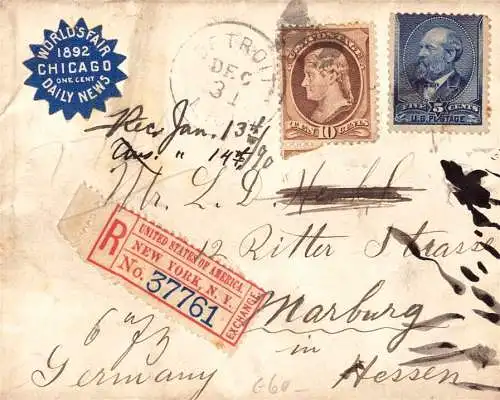 WORLD'S FAIR
1892
CHICAGO
ONE CENT
DAILY NEWS
DETROIT
DEC
31
10 CENTS
FIVE 5 CENTS
U.S. POSTAGE
Rec Jan. 13th/90
Ans. " 14th/90
Mr. L. D.
12 Ritter Strasse
Marburg
in
Hessen
Germany
R
UNITED STATES OF AMERICA
NEW YORK, N. Y.
No. 37761
EXCHANGE